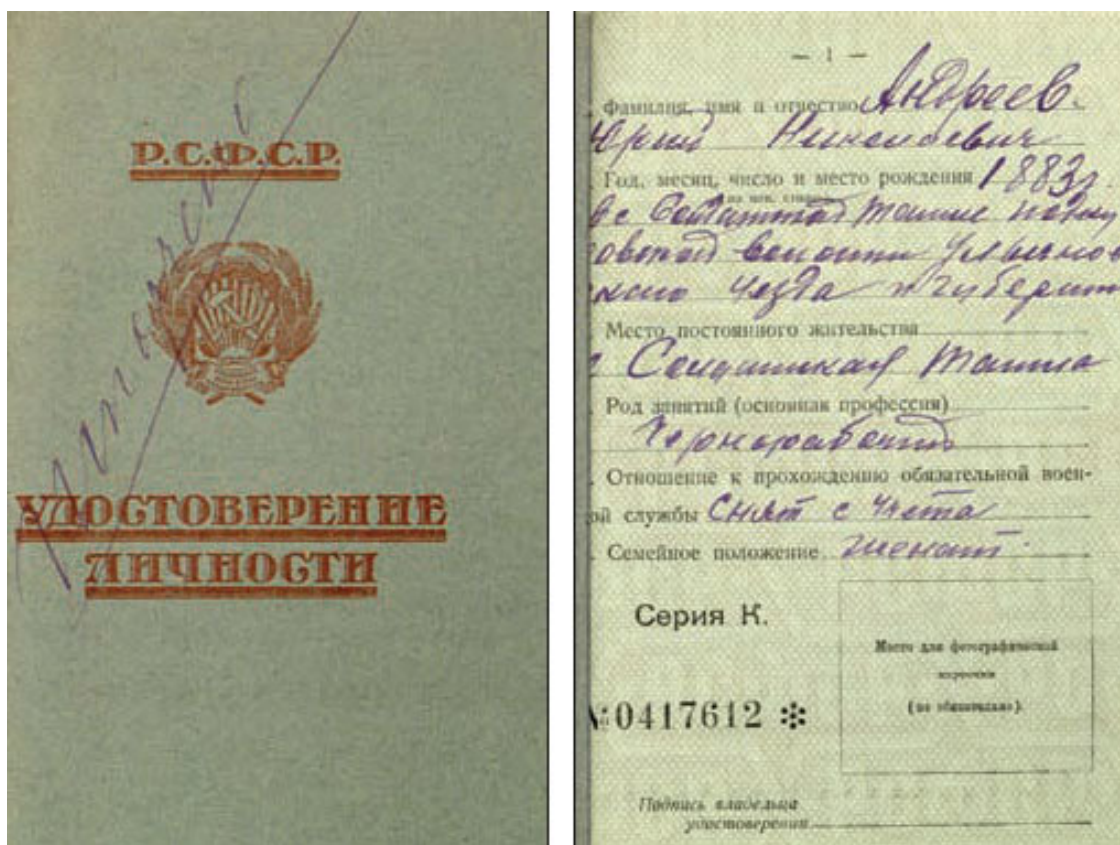 Р.С.Ф.С.Р.
УДОСТОВЕРЕНИЕ
ЛИЧНОСТИ
— 1 —
Фамилия, имя и отчество Андреев.
Юрий Николаевич
Год, месяц, число и место рождения 1883г
(по нов. стилю)
в с Солдатской Ташле
волости Ульянов
ского уезда и губернии
Место постоянного жительства
с Солдатская Ташла
Род занятий (основная профессия)
Чернорабочий
Отношение к прохождению обязательной воен-
ой службы Снят с учета
Семейное положение женат.
Серия К.
№ 0417612
Место для фотографической
карточки
(не обязательно).
Подпись владельца
удостоверения